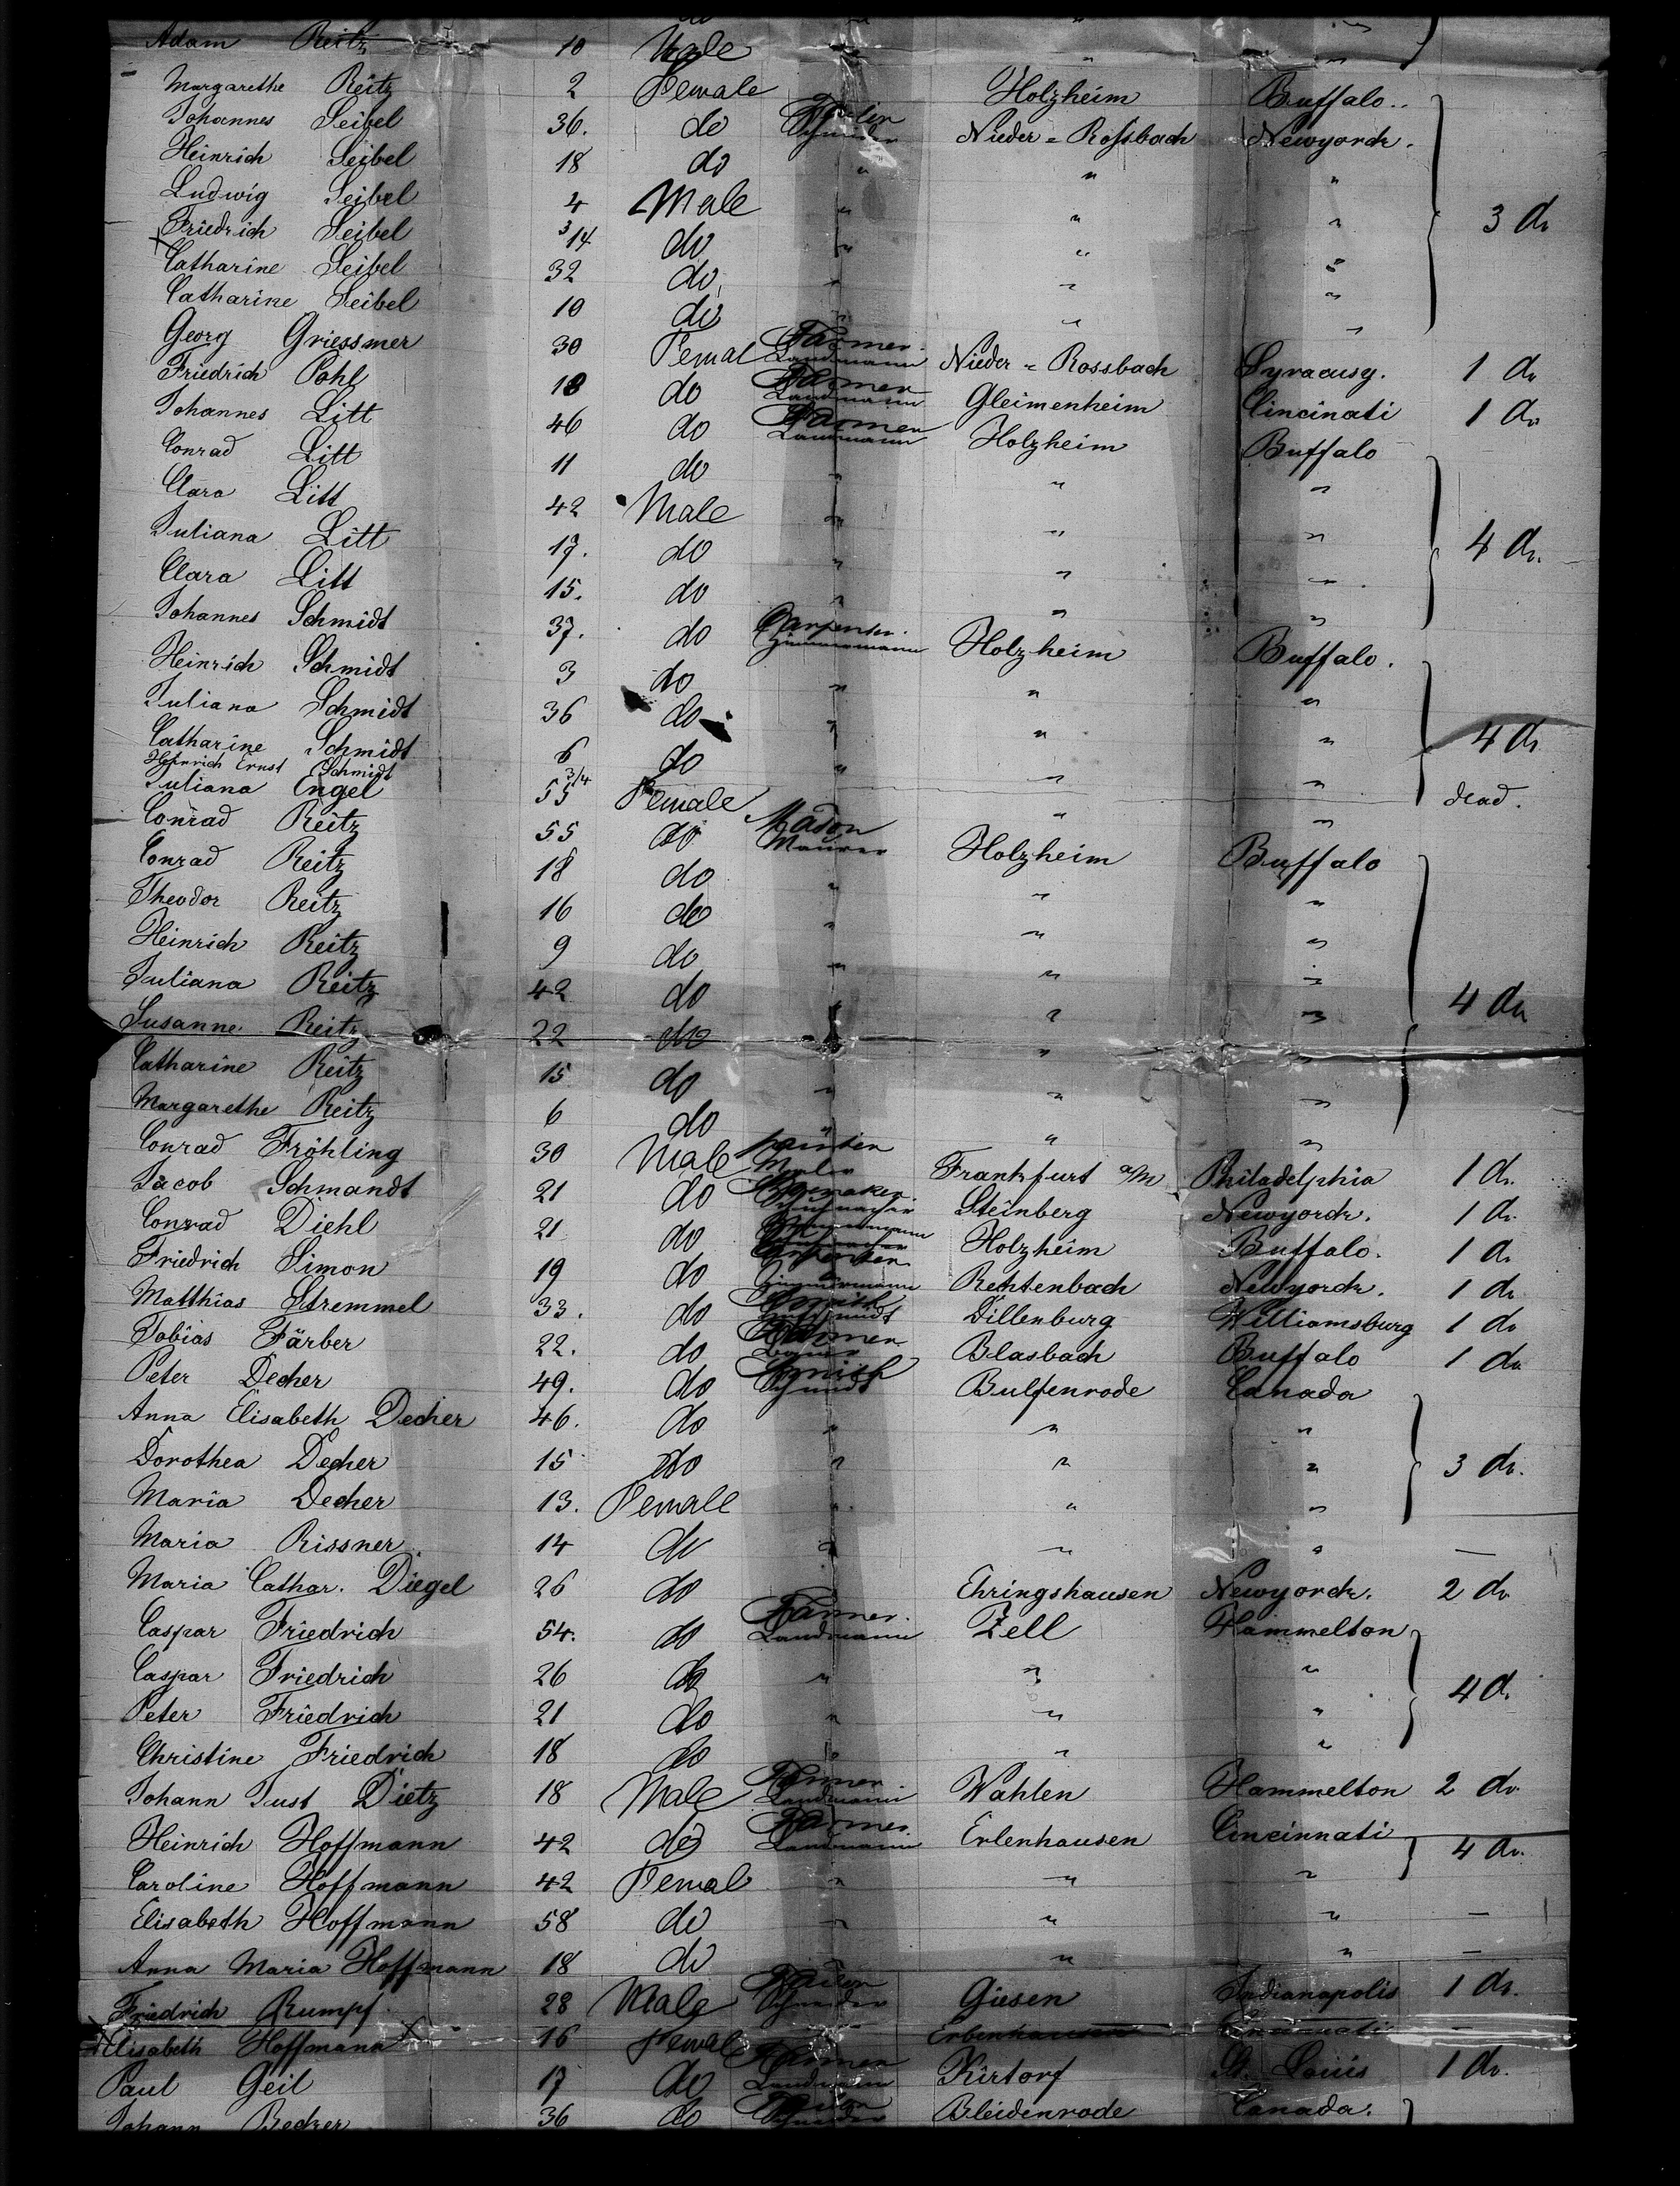 Adam Reitz 10 Male " "
Margarethe Reitz 2 Female Holzheim Buffalo..
Johannes Seibel 36. do Schneider Nieder = Rossbach Newyorck.
Heinrich Seibel 18 do " " "
Ludwig Seibel 4 Male " " " 3 do
Friedrich Seibel 3/4 do " " "
Catharine Seibel 32 do " " "
Catharine Seibel 10 do " " "
Georg Griessmer 30 Femal Farmer. Landmann Nieder = Rossbach Syracusy. 1 do
Friedrich Pohl 18 do Farmer Landmann Gleimenheim Cincinati 1 do
Johannes Litt 46 do Farmer Landmann Holzheim Buffalo
Conrad Litt 11 do " " "
Clara Litt 42 Male " " "
Juliana Litt 17. do " " " 4 do.
Clara Litt 15. do " " "
Johannes Schmidt 37. do Carpenter. Zimmermann Holzheim Buffalo.
Heinrich Schmidt 3 do " " "
Juliana Schmidt 36 do " " "
Catharine Schmidt 6 do " " " 4 do
Heinrich Ernst Schmidt 3/4 " " dead.
Juliana Engel 55 Female " "
Conrad Reitz 55 do Mason Maurer Holzheim Buffalo
Conrad Reitz 18 do " " "
Theodor Reitz 16 do " " "
Heinrich Reitz 9 do " " "
Juliana Reitz 42 do " " 4 do
Susanne Reitz 22 do " "
Catharine Reitz 15 do " " "
Margarethe Reitz 6 do " " "
Conrad Fröhling 30 Male painter Maler Frankfurt a/M Philadelphia 1 do.
Jacob Schmandt 21 do Steinberg Newyorck. 1 do.
Conrad Diehl 21 do Holzheim Buffalo. 1 do
Friedrich Simon 19 do Carpenter Zimmermann Rehtenbach Newyorck. 1 do
Matthias Stremmel 33. do Smith Dillenburg Williamsburg 1 do
Tobias Färber 22. do Farmer Bauer Blasbach Buffalo 1 do
Peter Decher 49. do Smith Schmidt Bulfenrode Canada
Anna Elisabeth Decher 46. do " " "
Dorothea Decher 15 do " " " 3 do.
Maria Decher 13. Female " " "
Maria Rissner 14 do " " " —
Maria Cathar. Diegel 26 do Ehringshausen Newyorck. 2 do
Caspar Friedrich 54. do Farmer. Landmann Zell Hammelton
Caspar Friedrich 26 do " " "
Peter Friedrich 21 do " " " 4 do.
Christine Friedrich 18 do " " "
Johann Just Dietz 18 Male Farmer. Landmann Wahlen Hammelton 2 do
Heinrich Hoffmann 42 do Farmer. Landmann Erlenhausen Cincinnati 4 do.
Caroline Hoffmann 42 Femal " " "
Elisabeth Hoffmann 58 do " " " —
Anna Maria Hoffmann 18 do " " —
Friedrich Rumpf. 28 Male Schneider Giesen Indianapolis 1 do.
Elisabeth Hoffmann 16 Femal Erbenhausen Cincinnati —
Paul Geil 17 do Farmer Landmann Kirtorf St. Louis 1 do.
Johann Becker 36 do Schneider Bleidenrode Canada.